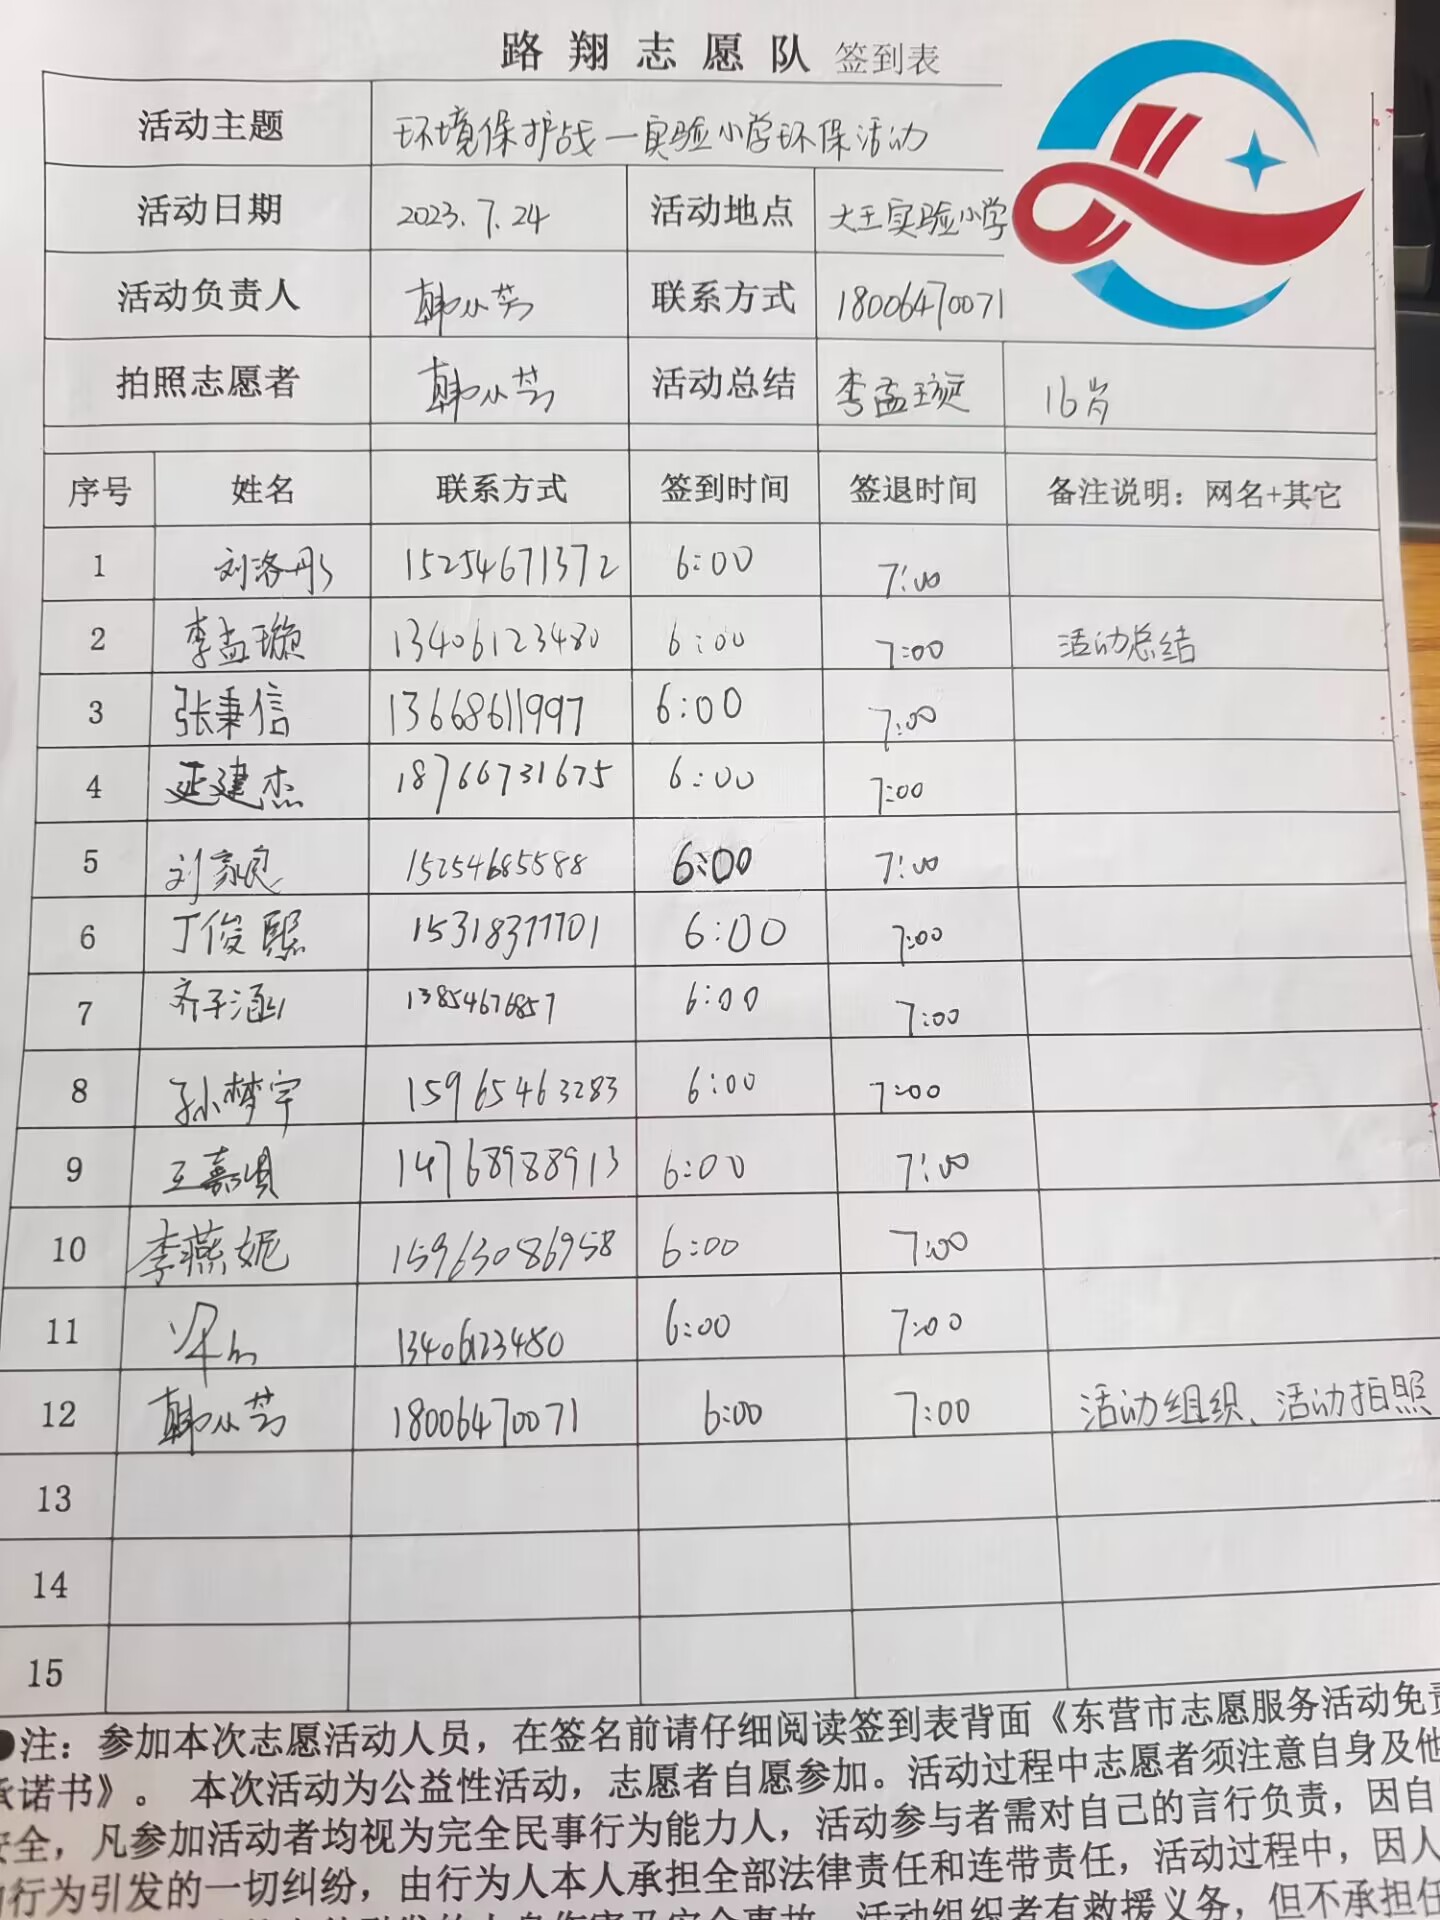 路翔志愿队 签到表
活动主题 环境保护战—实验小学环保活动
活动日期 2023.7.24 活动地点 大王实验小学
活动负责人 韩从芳 联系方式 18006470071
拍照志愿者 韩从芳 活动总结 李孟璇 16岁
序号 姓名 联系方式 签到时间 签退时间 备注说明：网名+其它
1 刘洛彤 15254671372 6:00 7:00
2 李孟璇 13406123480 6:00 7:00 活动总结
3 张秉信 13668611997 6:00 7:00
4 延建杰 18766731675 6:00 7:00
5 刘家良 15254685588 6:00 7:00
6 丁俊熙 15318377701 6:00 7:00
7 齐子涵 13854676857 6:00 7:00
8 孙梦宇 15965463283 6:00 7:00
9 王嘉 14768988913 6:00 7:00
10 李燕妮 15963086958 6:00 7:00
11 13406123480 6:00 7:00
12 韩从芳 18006470071 6:00 7:00 活动组织、活动拍照
13
14
15
●注：参加本次志愿活动人员，在签名前请仔细阅读签到表背面《东营市志愿服务活动免责
承诺书》。 本次活动为公益性活动，志愿者自愿参加。活动过程中志愿者须注意自身及他
安全，凡参加活动者均视为完全民事行为能力人，活动参与者需对自己的言行负责，因自
行为引发的一切纠纷，由行为人本人承担全部法律责任和连带责任，活动过程中，因人
活动组织者有救援义务，但不承担任